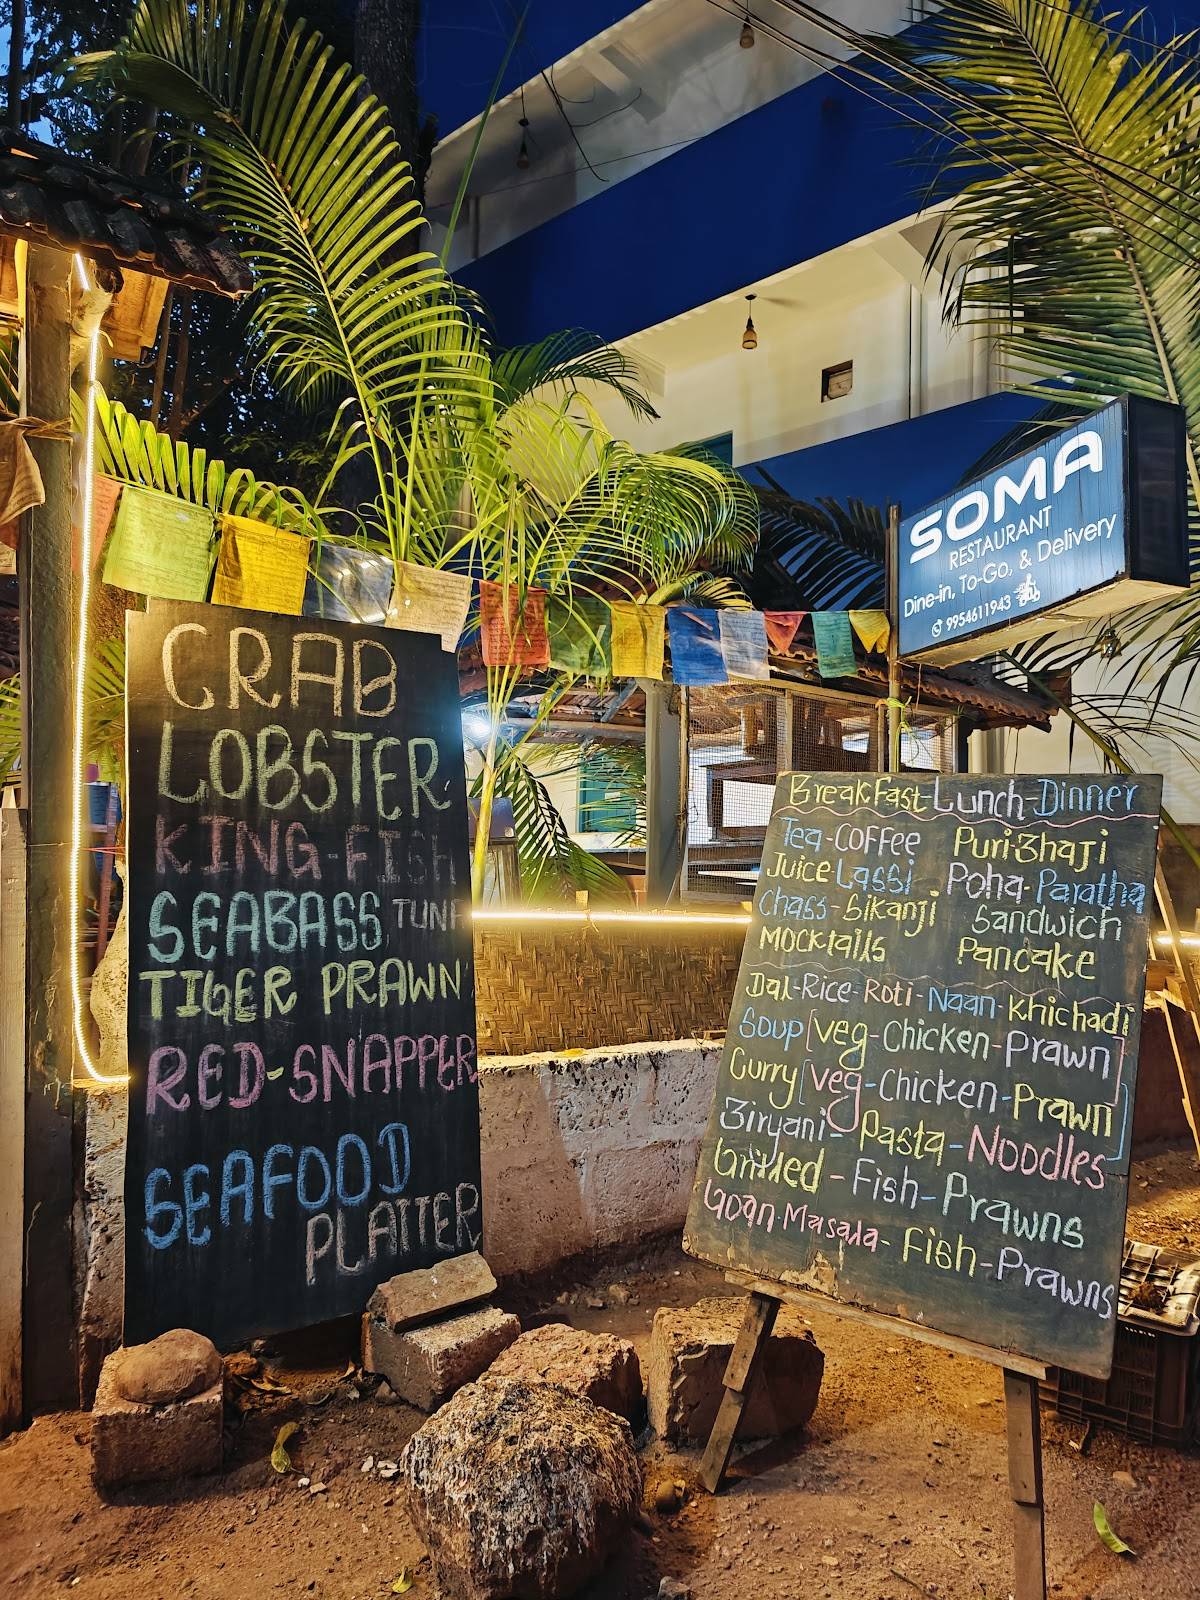 SOMA
RESTAURANT
Dine-in, To-Go, & Delivery
9954611943
CRAB
LOBSTER
KING-FISH
SEABASS TUNA
TIGER PRAWN
RED-SNAPPER
SEAFOOD
PLATTER
BreakFast-Lunch-Dinner
Tea-COFFee Puri-Bhaji
Juice-Lassi Poha-Paratha
Chass-Sikanji Sandwich
Mocktails Pancake
Dal-Rice-Roti-Naan-Khichadi
Soup [veg-Chicken-Prawn]
Curry [veg-Chicken-Prawn]
Biryani-Pasta-Noodles
Grilled-Fish-Prawns
Goan-Masala-Fish-Prawns